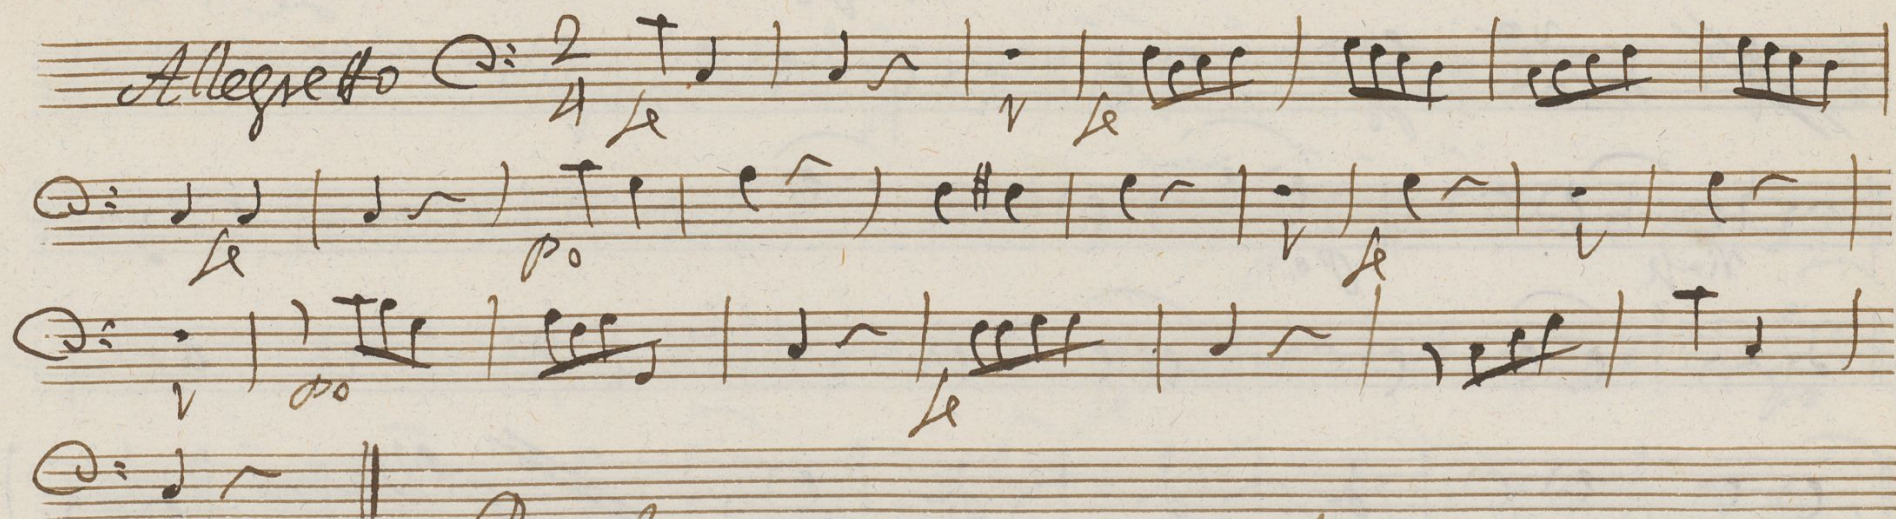 Allegretto 2
4 fe v fe
fe po v fe v
v po fe